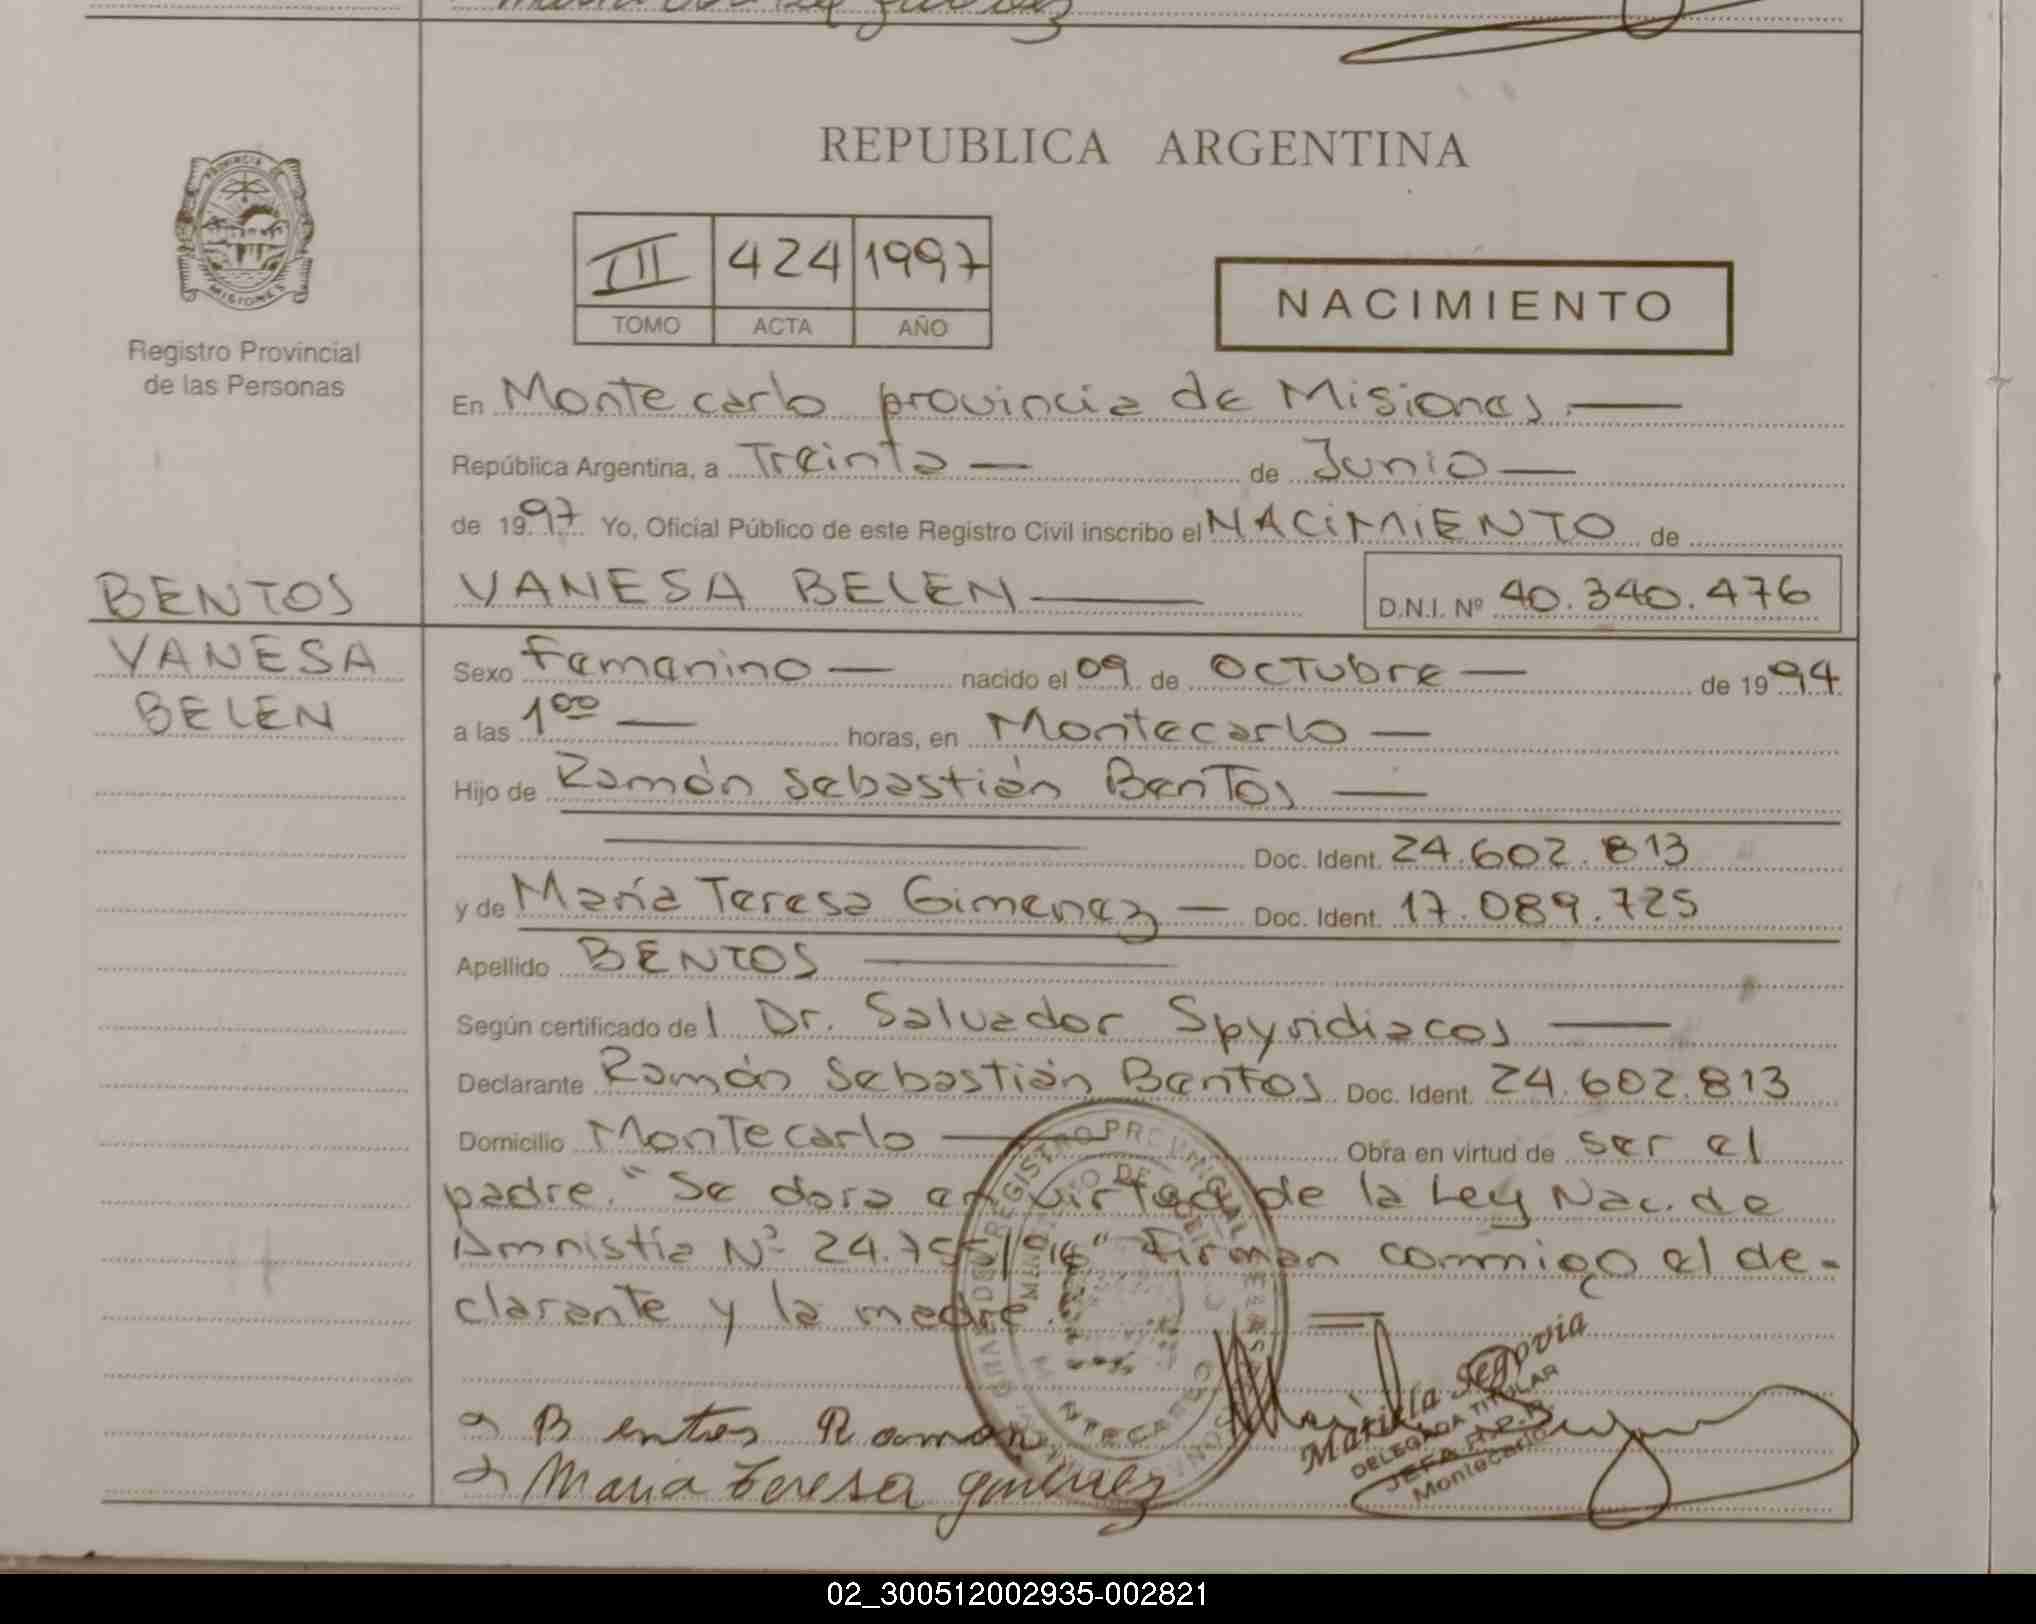 REPUBLICA ARGENTINA
PROVINCIA DE
MISIONES
Registro Provincial
de las Personas
III 424 1997
TOMO ACTA AÑO
NACIMIENTO
En Montecarlo provincia de Misiones
República Argentina, a Treinta de Junio
de 1997 Yo, Oficial Público de este Registro Civil inscribo el NACIMIENTO de
BENTOS
VANESA
BELEN
VANESA BELEN D.N.I. Nº 40.340.476
Sexo Femenino nacido el 09 de Octubre de 1994
a las 1 00 horas, en Montecarlo
Hijo de Ramón Sebastián Bentos
Doc. Ident. 24.602.813
y de María Teresa Gimenez Doc. Ident. 17.089.725
Apellido BENTOS
Según certificado del Dr. Salvador Spyridiacos
Declarante Ramón Sebastián Bentos Doc. Ident. 24.602.813
Domicilio Montecarlo Obra en virtud de ser el
padre. "Se dora en virtud de la Ley Nac. de
Amnistía Nº 24.755/96" Firman conmigo el de-
clarante y la madre.
Bentos Ramon
Maria Teresa gimenez
Mariela Segovia
DELEGADA TITULAR
JEFA R.P.P.
Montecarlo
02_300512002935-002821